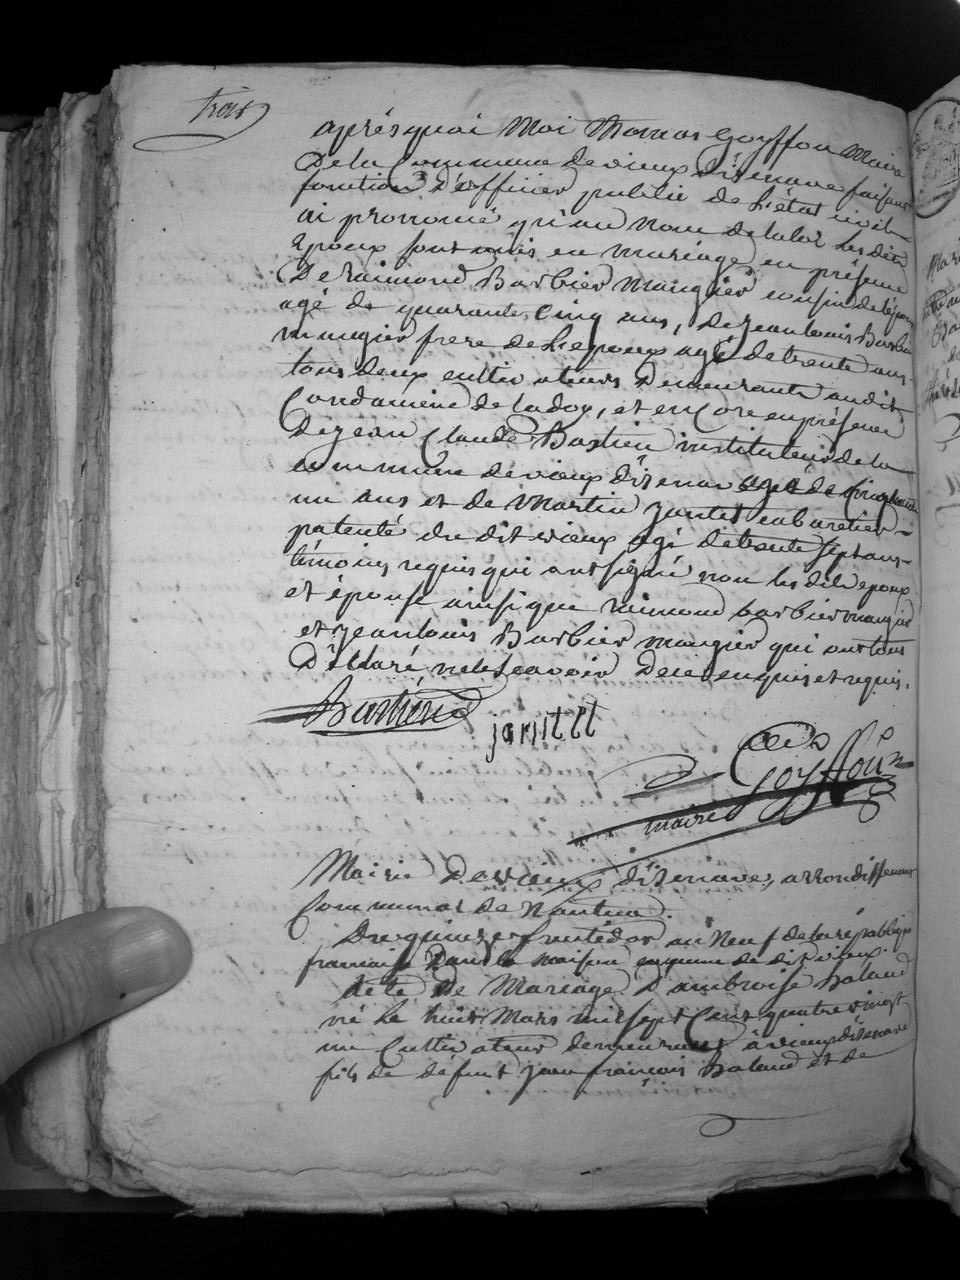 trois
après quoi Moi Thomas Goyffon Maire
De la Commune de vieux d'isenave faisant
fonction D'officier public de L'état civil
ai prononcé qu'au Nom de la loi les dits
Epoux sont unis en mariage en présence
De Raimond Barbier maugier cousin de l'épou
agé de quarante Cinq ans, de jean louis Barbier
maugier frere de L'epoux agé de trente ans
tous deux cultivateurs Demeurants audit
Condamine de la doy, et en Core en présence
De jean Claude Bastien instituteur de la
commune de vieux d'isenave agé de Cinquante
un ans et de Martin jantet cabaretier
patenté du dit vieux agé de trente sept ans
témoins requis qui ont signé non les dits epoux
et épouse ainsi que raimond barbier maugier
et jean louis Barbier maugier qui ont tous
Déclaré ne le scavoir De ce enquis et requis.
Bastien jantet
Goyffon
maire
Mairie De vieux d'isenave, arrondissement
Communal de Nantua.
Du quinze fructidor an Neuf de la république
francaise Dans la maison commune du dit vieux
Acte De Mariage D'ambroise Baland
né le huit Mars mil sept Cent quatre vingt
un Cultivateur demeurant à vieux d'isenave
fils de défunt jean françois Baland et de